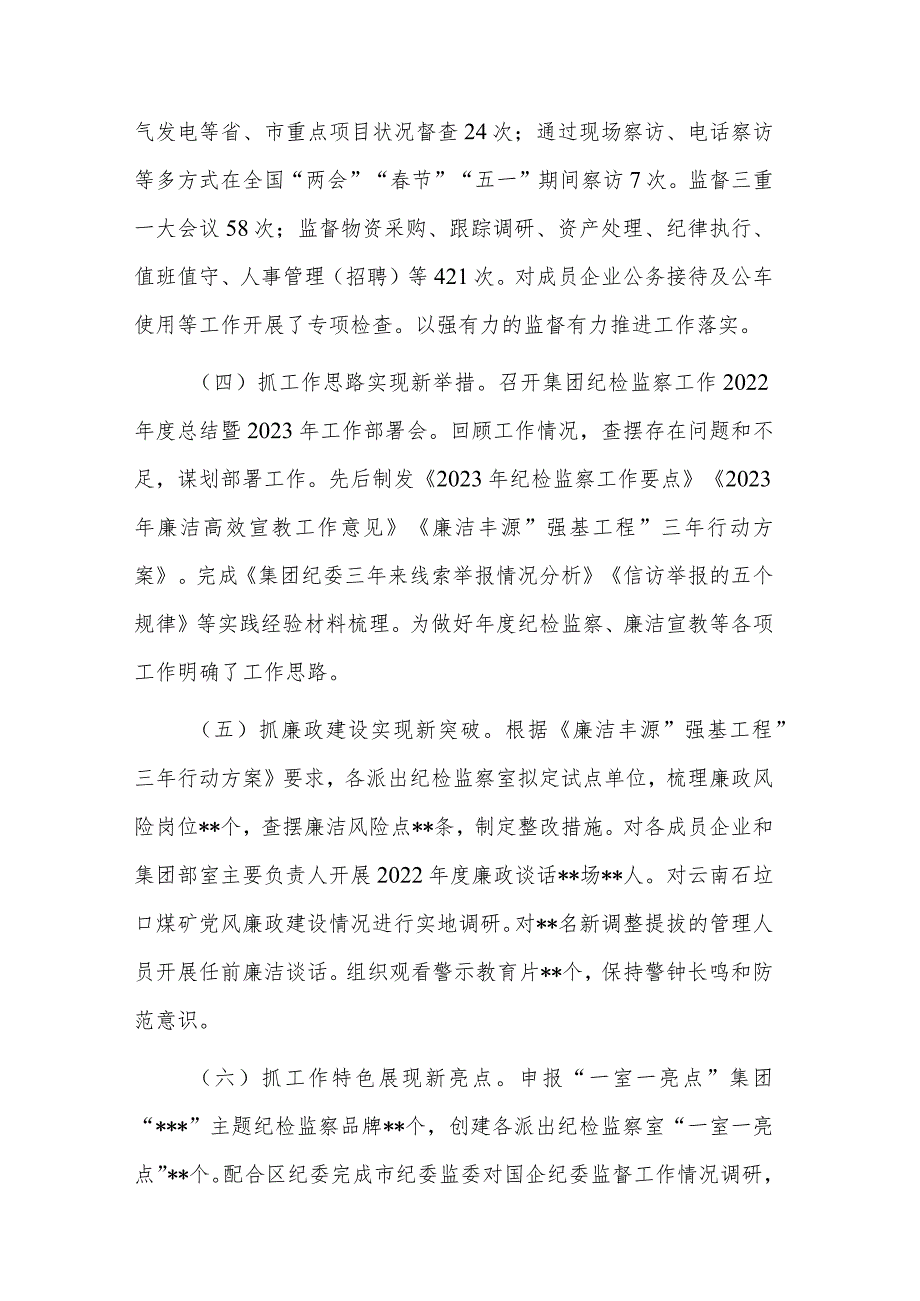 气发电等省、市重点项目状况督查 24 次；通过现场察访、电话察访
等多方式在全国“两会”“春节”“五一”期间察访 7 次。监督三重
一大会议 58 次；监督物资采购、跟踪调研、资产处理、纪律执行、
值班值守、人事管理（招聘）等 421 次。对成员企业公务接待及公车
使用等工作开展了专项检查。以强有力的监督有力推进工作落实。
（四）抓工作思路实现新举措。召开集团纪检监察工作 2022
年度总结暨 2023 年工作部署会。回顾工作情况，查摆存在问题和不
足，谋划部署工作。先后制发《2023 年纪检监察工作要点》《2023
年廉洁高效宣教工作意见》《廉洁丰源”强基工程”三年行动方
案》。完成《集团纪委三年来线索举报情况分析》《信访举报的五个
规律》等实践经验材料梳理。为做好年度纪检监察、廉洁宣教等各项
工作明确了工作思路。
（五）抓廉政建设实现新突破。根据《廉洁丰源”强基工程”
三年行动方案》要求，各派出纪检监察室拟定试点单位，梳理廉政风
险岗位**个，查摆廉洁风险点**条，制定整改措施。对各成员企业和
集团部室主要负责人开展 2022 年度廉政谈话**场**人。对云南石垃
口煤矿党风廉政建设情况进行实地调研。对**名新调整提拔的管理人
员开展任前廉洁谈话。组织观看警示教育片**个，保持警钟长鸣和防
范意识。
（六）抓工作特色展现新亮点。申报“一室一亮点”集团
“***”主题纪检监察品牌**个，创建各派出纪检监察室“一室一亮
点”**个。配合区纪委完成市纪委监委对国企纪委监督工作情况调研，